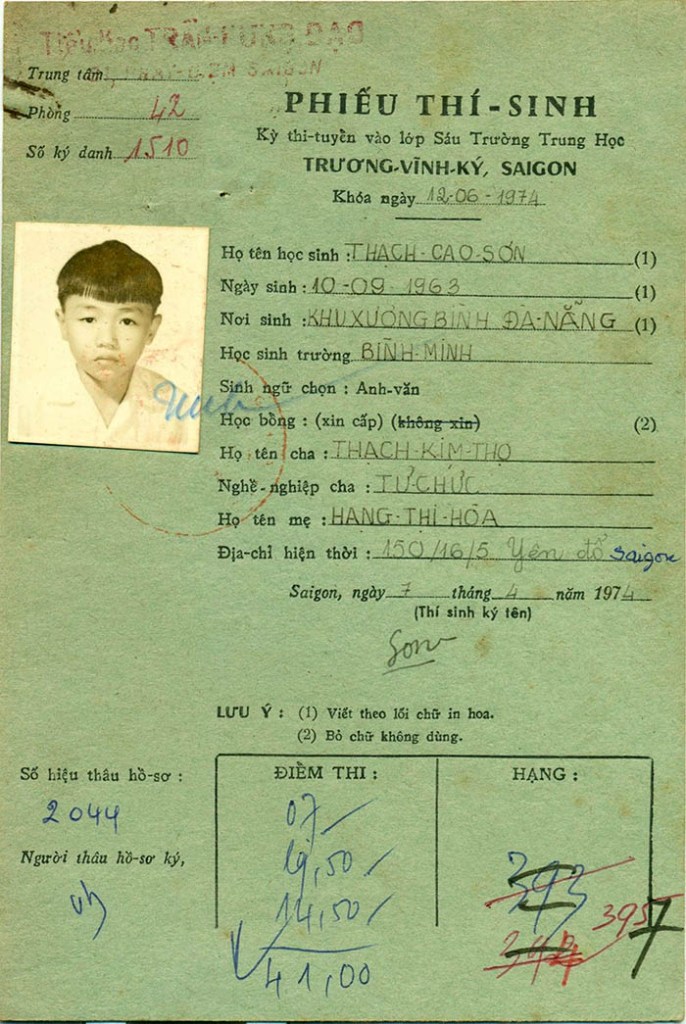 Trung tâm
Phòng 42
Số ký danh 1510
PHIẾU THÍ-SINH
Kỳ thi-tuyển vào lớp Sáu Trường Trung Học
TRƯƠNG-VĨNH-KÝ, SAIGON
Khóa ngày 12-06-1974
Họ tên học sinh : THẠCH-CAO-SƠN (1)
Ngày sinh : 10-09-1963 (1)
Nơi sinh : KHUXƯƠNG BÌNH ĐÀ-NẴNG (1)
Học sinh trường BÌNH-MINH
Sinh ngữ chọn : Anh-văn
Học bổng : (xin cấp) (không xin) (2)
Họ tên cha : THẠCH-KIM-THỌ
Nghề-nghiệp cha : TƯ-CHỨC
Họ tên mẹ : HANG-THỊ-HÓA
Địa-chỉ hiện thời : 150/16/5 Yên đổ Saigon
Saigon, ngày 7 tháng 4 năm 1974
(Thí sinh ký tên)
Sơn
LƯU Ý : (1) Viết theo lối chữ in hoa.
(2) Bỏ chữ không dùng.
Số hiệu thâu hồ-sơ :
2044
Người thâu hồ-sơ ký,
ĐIỂM THI :
07
19,50
14,50
41,00
HẠNG :
393
395
7